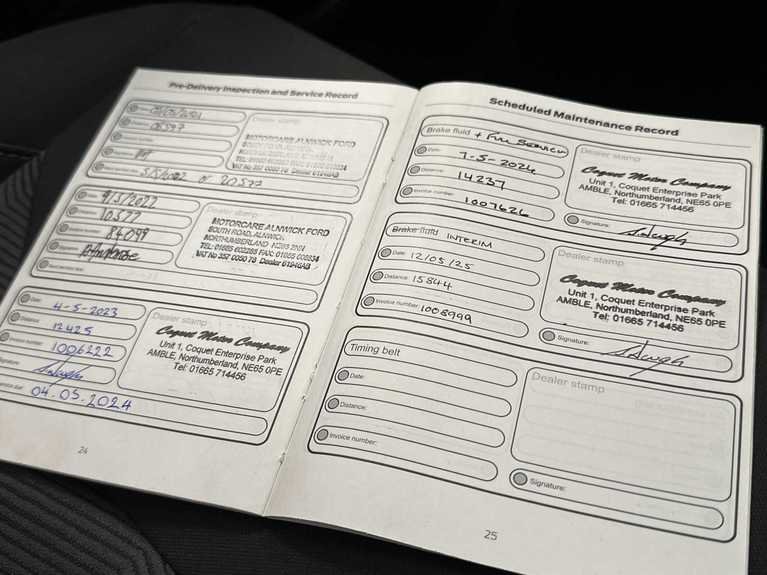 Pre-Delivery Inspection and Service Record
Dealer stamp
MOTORCARE ALNWICK FORD
Date:
9/5/2022
10577
Invoice number:
84099
Dealer stamp
MOTORCARE ALNWICK FORD
SOUTH ROAD, ALNWICK
NORTHUMBERLAND
Date:
4-5-2023
Distance:
12425
Invoice number:
1006222
Signature:
04.05.2024
Dealer stamp
Coquet Motor Company
Unit 1, Coquet Enterprise Park
AMBLE, Northumberland, NE65 0PE
Tel: 01665 714456
24
Scheduled Maintenance Record
Brake fluid + FULL SERVICE
Date:
7-5-2024
Distance:
14237
Invoice number:
1007626
Dealer stamp
Coquet Motor Company
Unit 1, Coquet Enterprise Park
AMBLE, Northumberland, NE65 0PE
Tel: 01665 714456
Signature:
Brake fluid INTERIM
Date: 12/05/25
Distance: 15844
Invoice number: 1008999
Dealer stamp
Coquet Motor Company
Unit 1, Coquet Enterprise Park
AMBLE, Northumberland, NE65 0PE
Tel: 01665 714456
Signature:
Timing belt
Date:
Distance:
Invoice number:
Dealer stamp
Signature:
25